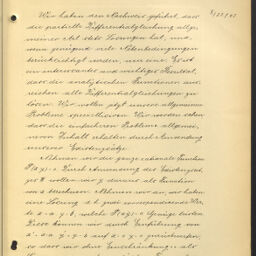 Wir haben den Nachweis geführt, dass
die partielle Differentialgleichung allge-
meiner Art stets Lösungen hat, und
wenn genügend viele Nebenbedingungen
berücksichtigt werden, nur eine. Es ist
ein interessantes und wichtiges Resultat,
dass die analytischen Funktionen aus-
reichen alle Differentialgleichungen zu
lösen. Wir wollen jetzt unsere allgemeinen
Probleme specialisieren. Wir werden sehen
dass die einfacheren Probleme allgemei-
neren Inhalt erhalten durch Anwendung
unserer Existenzsätze.
Nehmen wir die ganze rationale Funktion
F(x y). Durch Anwendung des Existenzsat-
zes wollen wir y daraus als Funktion
von x berechnen. Nehmen wir an, wir haben
eine Lösung d.h. zwei correspondierende Wer-
te x = a y = b, welche F(x y) = 0 Genüge leisten
Diese können wir durch Einführung von
x - a y - b auf x = 0 y = 0 zurückführen,
so dass wir ohne Einschränkung als